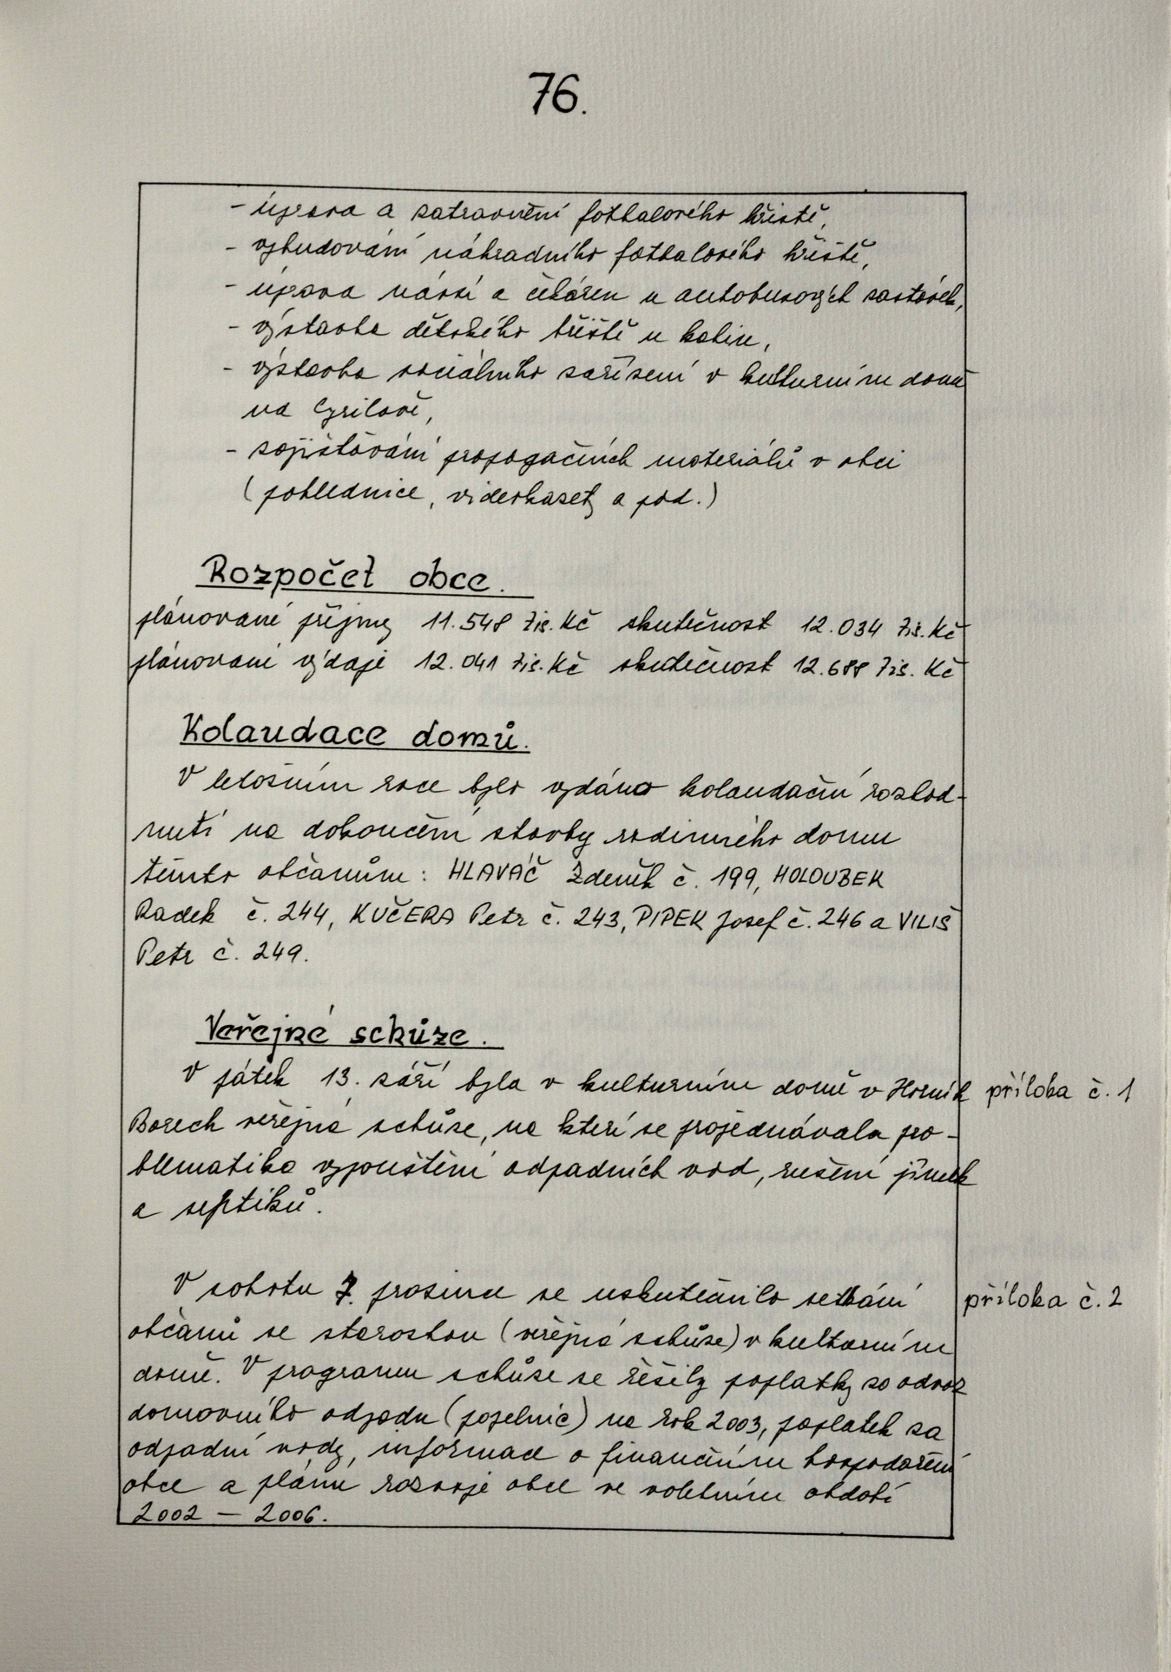 76.
- úprava a zatravnění fotbalového hřiště,
- vybudování náhradního fotbalového hřiště,
- úprava návsí a čekáren u autobusových zastávek,
- výstavba dětského hřiště u kolin,
- výstavba sociálního zařízení v kulturním domě
na Cyrilově,
- zajišťování propagačních materiálů v obci
(pohlednice, videokazety a pod.)
Rozpočet obce.
plánované příjmy 11.548 tis. Kč skutečnost 12.034 tis. Kč
plánované výdaje 12.041 tis. Kč skutečnost 12.688 tis. Kč
Kolaudace domů.
V letošním roce bylo vydáno kolaudační rozhod-
nutí na dokončení stavby rodinného domu
těmto občanům: HLAVÁČ Zdeněk č. 199, HOLOUBEK
Radek č. 244, KUČERA Petr č. 243, PIPEK Josef č. 246 a VILIŠ
Petr č. 249.
Veřejné schůze.
V pátek 13. září byla v kulturním domě v Horních příloha č. 1
Borech veřejná schůze, na které se projednávala pro-
blematika vypouštění odpadních vod, rušení jímek
a septiků.
V sobotu 7. prosince se uskutečnilo setkání příloha č. 2
občanů se starostou (veřejná schůze) v kulturním
domě. V programu schůze se řešily poplatky za odvoz
domovního odpadu (popelnic) na rok 2003, poplatek za
odpadní vody, informace o finančním hospodaření
obce a plánu rozvoje obce ve volebním období
2002 - 2006.